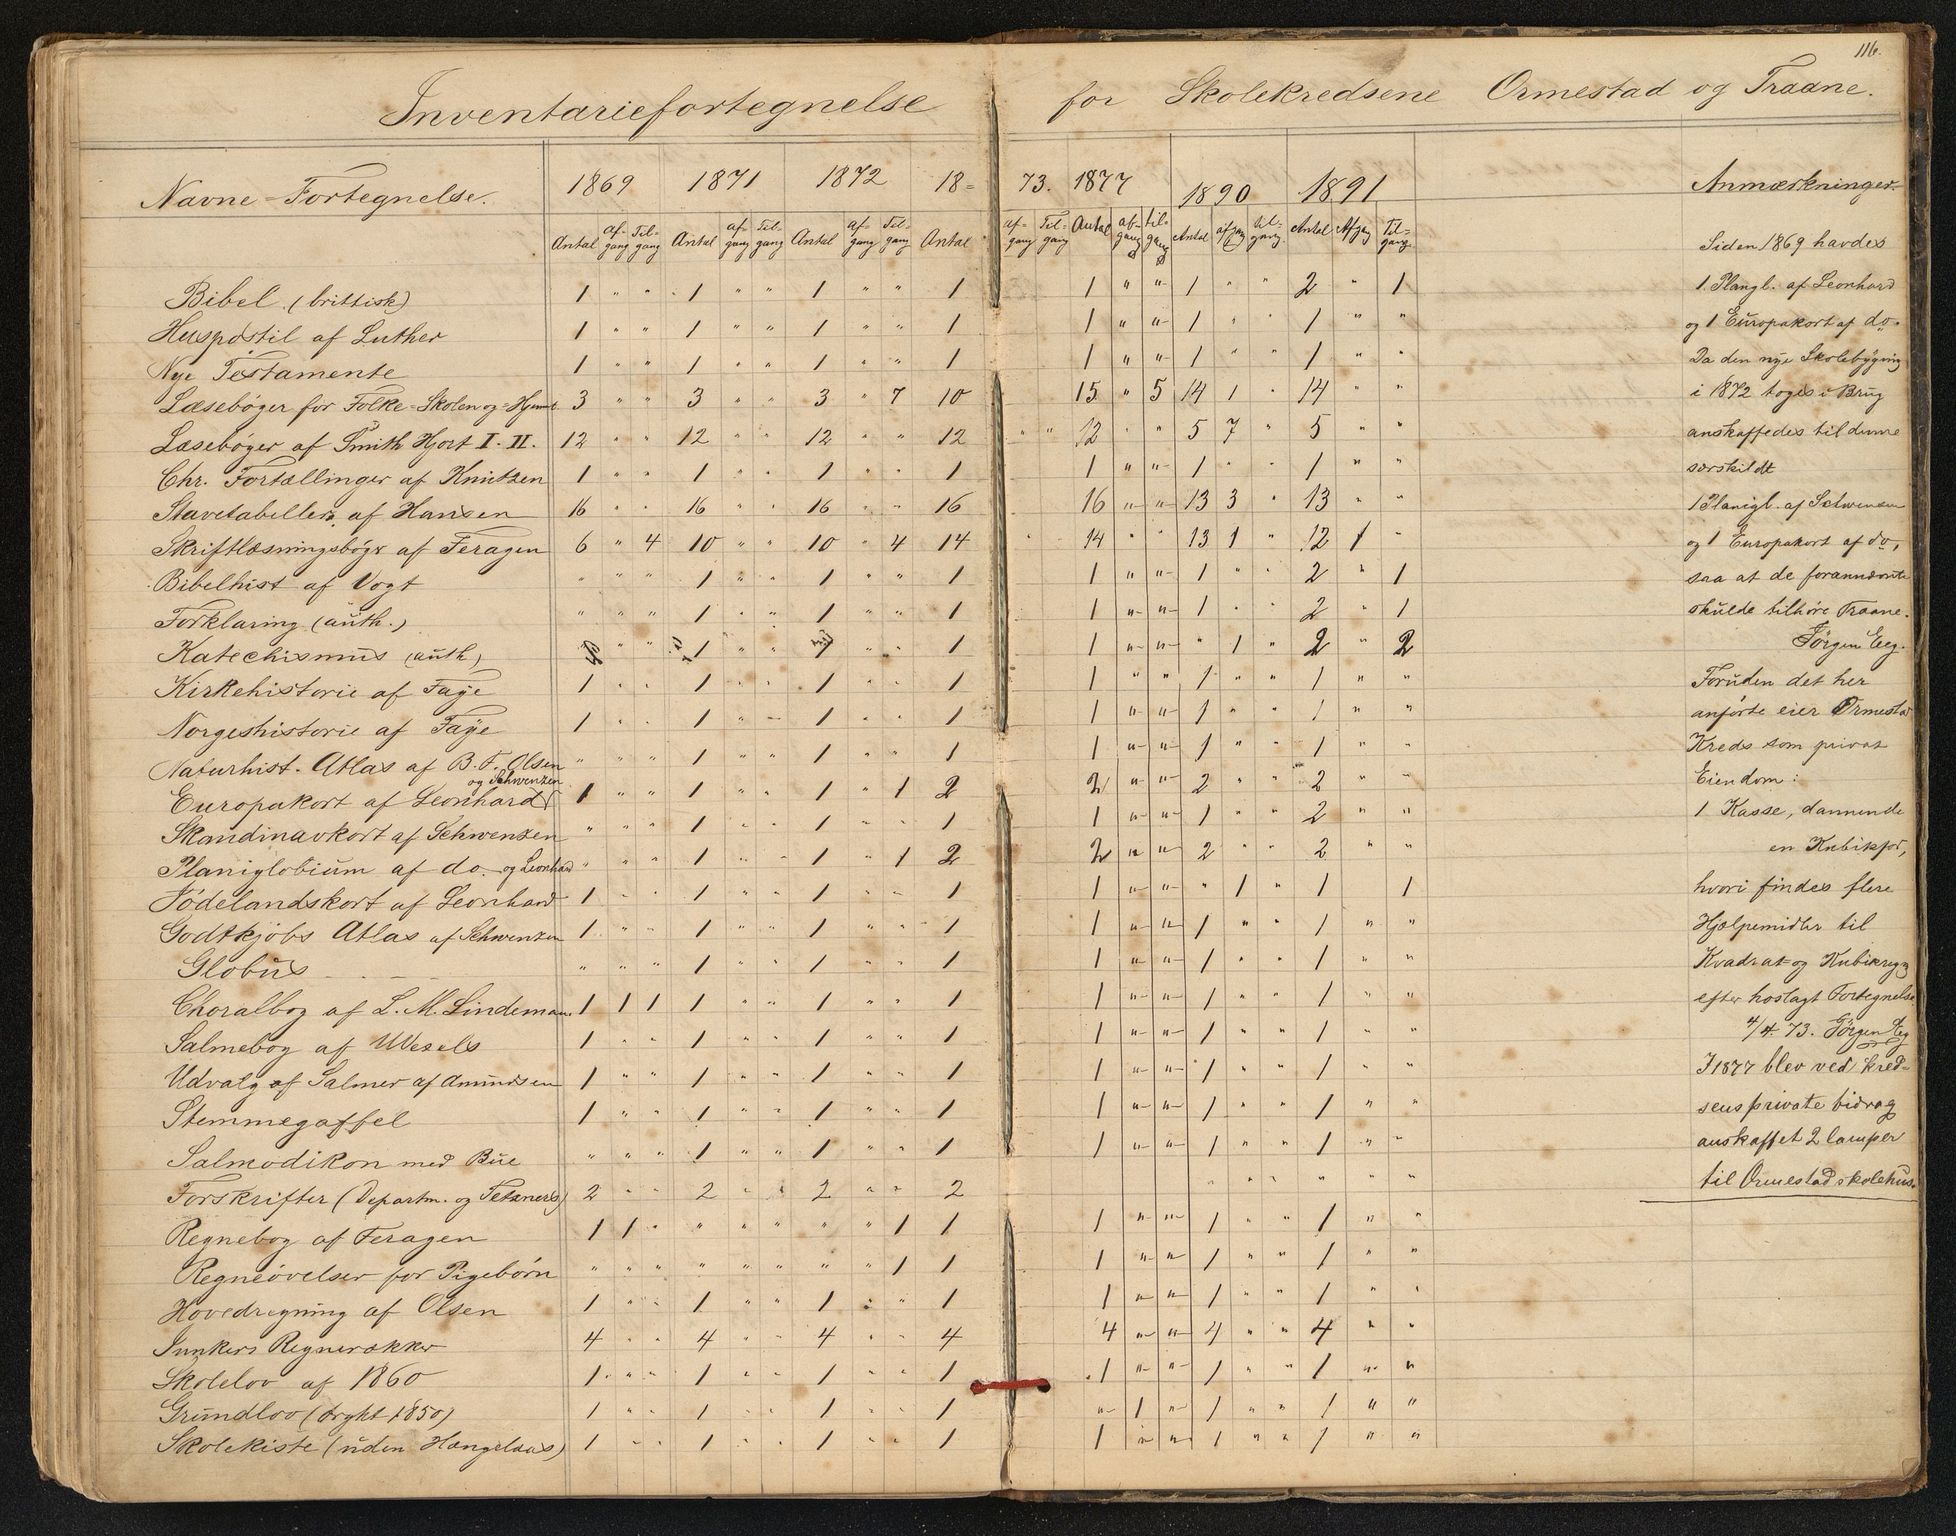 116.
Inventariefortegnelse for Skolekredsene Ormestad og Traane.
Navne-Fortegnelse. 1869 1871 1872 18= 73. 1877 1890 1891 Anmærkninger
Antal af-gang Til-gang Antal af-gang Til-gang Antal af-gang Til-gang Antal af-gang Til-gang Antal af-gang til-gang Antal afgang til-gang Antal Afgang Til-gang
Bibel (brittisk) 1 " " 1 " " 1 " " 1 1 " " 1 " " 2 " 1
Huspostil af Luther 1 " " 1 " " 1 " " 1 1 " " 1 " " 1 " "
Nye Testamente 1 " " 1 " " 1 " " 1 1 " " 1 " " 1 " "
Læsebøger for Folke-Skolen og Hjemt 3 " " 3 " " 3 " 7 10 15 " 5 14 1 " 14 " "
Læsebøger af Smith Hjort I. II. 12 " " 12 " " 12 " " 12 " " 12 " " 5 7 " 5 " "
Chr. Fortællinger af Knutzen 1 " " 1 " " 1 " " 1 1 " " 1 " " 1 " "
Stavetabeller af Hansen 16 " " 16 " " 16 " " 16 16 " " 13 3 " 13 " "
Skriftlæsningsbøger af Feragen 6 " 4 10 " " 10 " 4 14 " 14 " " 13 1 " 12 1 "
Bibelhist af Vogt " " " 1 " " 1 " " 1 1 " " 1 " " 2 " 1
Forklaring (auth.) " " " 1 " " 1 " " 1 1 " " 1 " " 2 " 1
Katechismus (auth) " " 1 " " 1 " " 1 1 " " " 1 " 2 " 2
Kirkehistorie af Faye 1 " " 1 " " 1 " " 1 1 " " 1 " " 1 " "
Norgeshistorie af Faye 1 " " 1 " " 1 " " 1 1 " " 1 " " 1 " "
Naturhist. Atlas af B. F. Olsen " " " 1 " " 1 " " 1 1 " " 1 " " 1 " "
og Schwenzen
Europakort af Leonhard 1 " " 1 " " 1 " 1 2 2 " " 2 " " 2 " "
Skandinavkort af Schwenzen " " " 1 " " 1 " " 1 1 " " 1 " " 2 " "
Planiglobium af do. og Leonhard " " " 1 " " 1 " 1 2 2 " " 2 " " 2 " "
Jødelandskort af Leonhard 1 " " 1 " " 1 " " 1 1 " " " 1 " 1 1
Godtkjøbs Atlas af Schwenzen 1 " " 1 " " 1 " " 1 1 " " 1 " " 1 " "
Globus " " " 1 " " 1 " " 1 1 " " 1 " " 1 " "
Choralbog af L. M. Lindeman. 1 1 1 1 " " 1 " " 1 1 " " 1 " " 1 " "
Salmebog af Wexels 1 " " 1 " " 1 " " 1 1 " " 1 " " 1 " "
Udvalg af Salmer af Amundsen 1 " " 1 " " 1 " " 1 1 " " 1 " " 1 " "
Stemmegaffel 1 " " 1 " " 1 " " 1 1 " " 1 " " 1 " "
Salmodikon med Bue " " " 1 " " 1 " " 1 1 " " 1 " " 1 " "
Forskrifter (Departm. og Tetzners) 2 " " 2 " " 2 " " 2 " " " " " "
Regnebog af Feragen 1 1 " " " " " " 1 1 1 " " 1 " " 1 " "
Regneøvelser for Pigebørn " " " " " " " " 1 1 1 " " 1 " " 1 " "
Hovedregning af Olsen 1 " " 1 " " 1 " " 1 1 " " 1 " " 1 " "
Junkers Regnerækker 4 " " 4 " " 4 " " 4 4 " " 4 " " 4 " "
Skolelov af 1860 1 " " 1 " " 1 " " 1 1 " " 1 " " 1 " "
Grundlov (trykt 1850) 1 " " 1 " " 1 " " 1 " 1 " 1 " " 1 " "
Skolekiste (uden Hængelaas) 1 " " 1 " " 1 " " 1 1 " " 1 " " 1 " "
Siden 1869 havdes
1 Plangl. af Leonhard
og 1 Europakort af do.
Da den nye Skolebygning
i 1872 toges i Brug
anskaffedes til denne
særskildt
1 Planigl. af Schwensen
og 1 Europakort af do,
saa at de forannævnte
skulde tilhøre Traane.
Jørgen Eeg.
Foruden det her
anførte eier Ormestad
Kreds som privat
Eiendom:
1 Kasse, dannende
en Kubikfod,
hvori findes flere
Hjælpemidler til
Kvadrat- og Kubikregn
efter hoslagt Fortegnelse
4/4. 73. Jørgen Eeg
I 1877 blev ved kred-
sens private bidrag
anskaffet 2 lamper
til Ormestad skolehus.